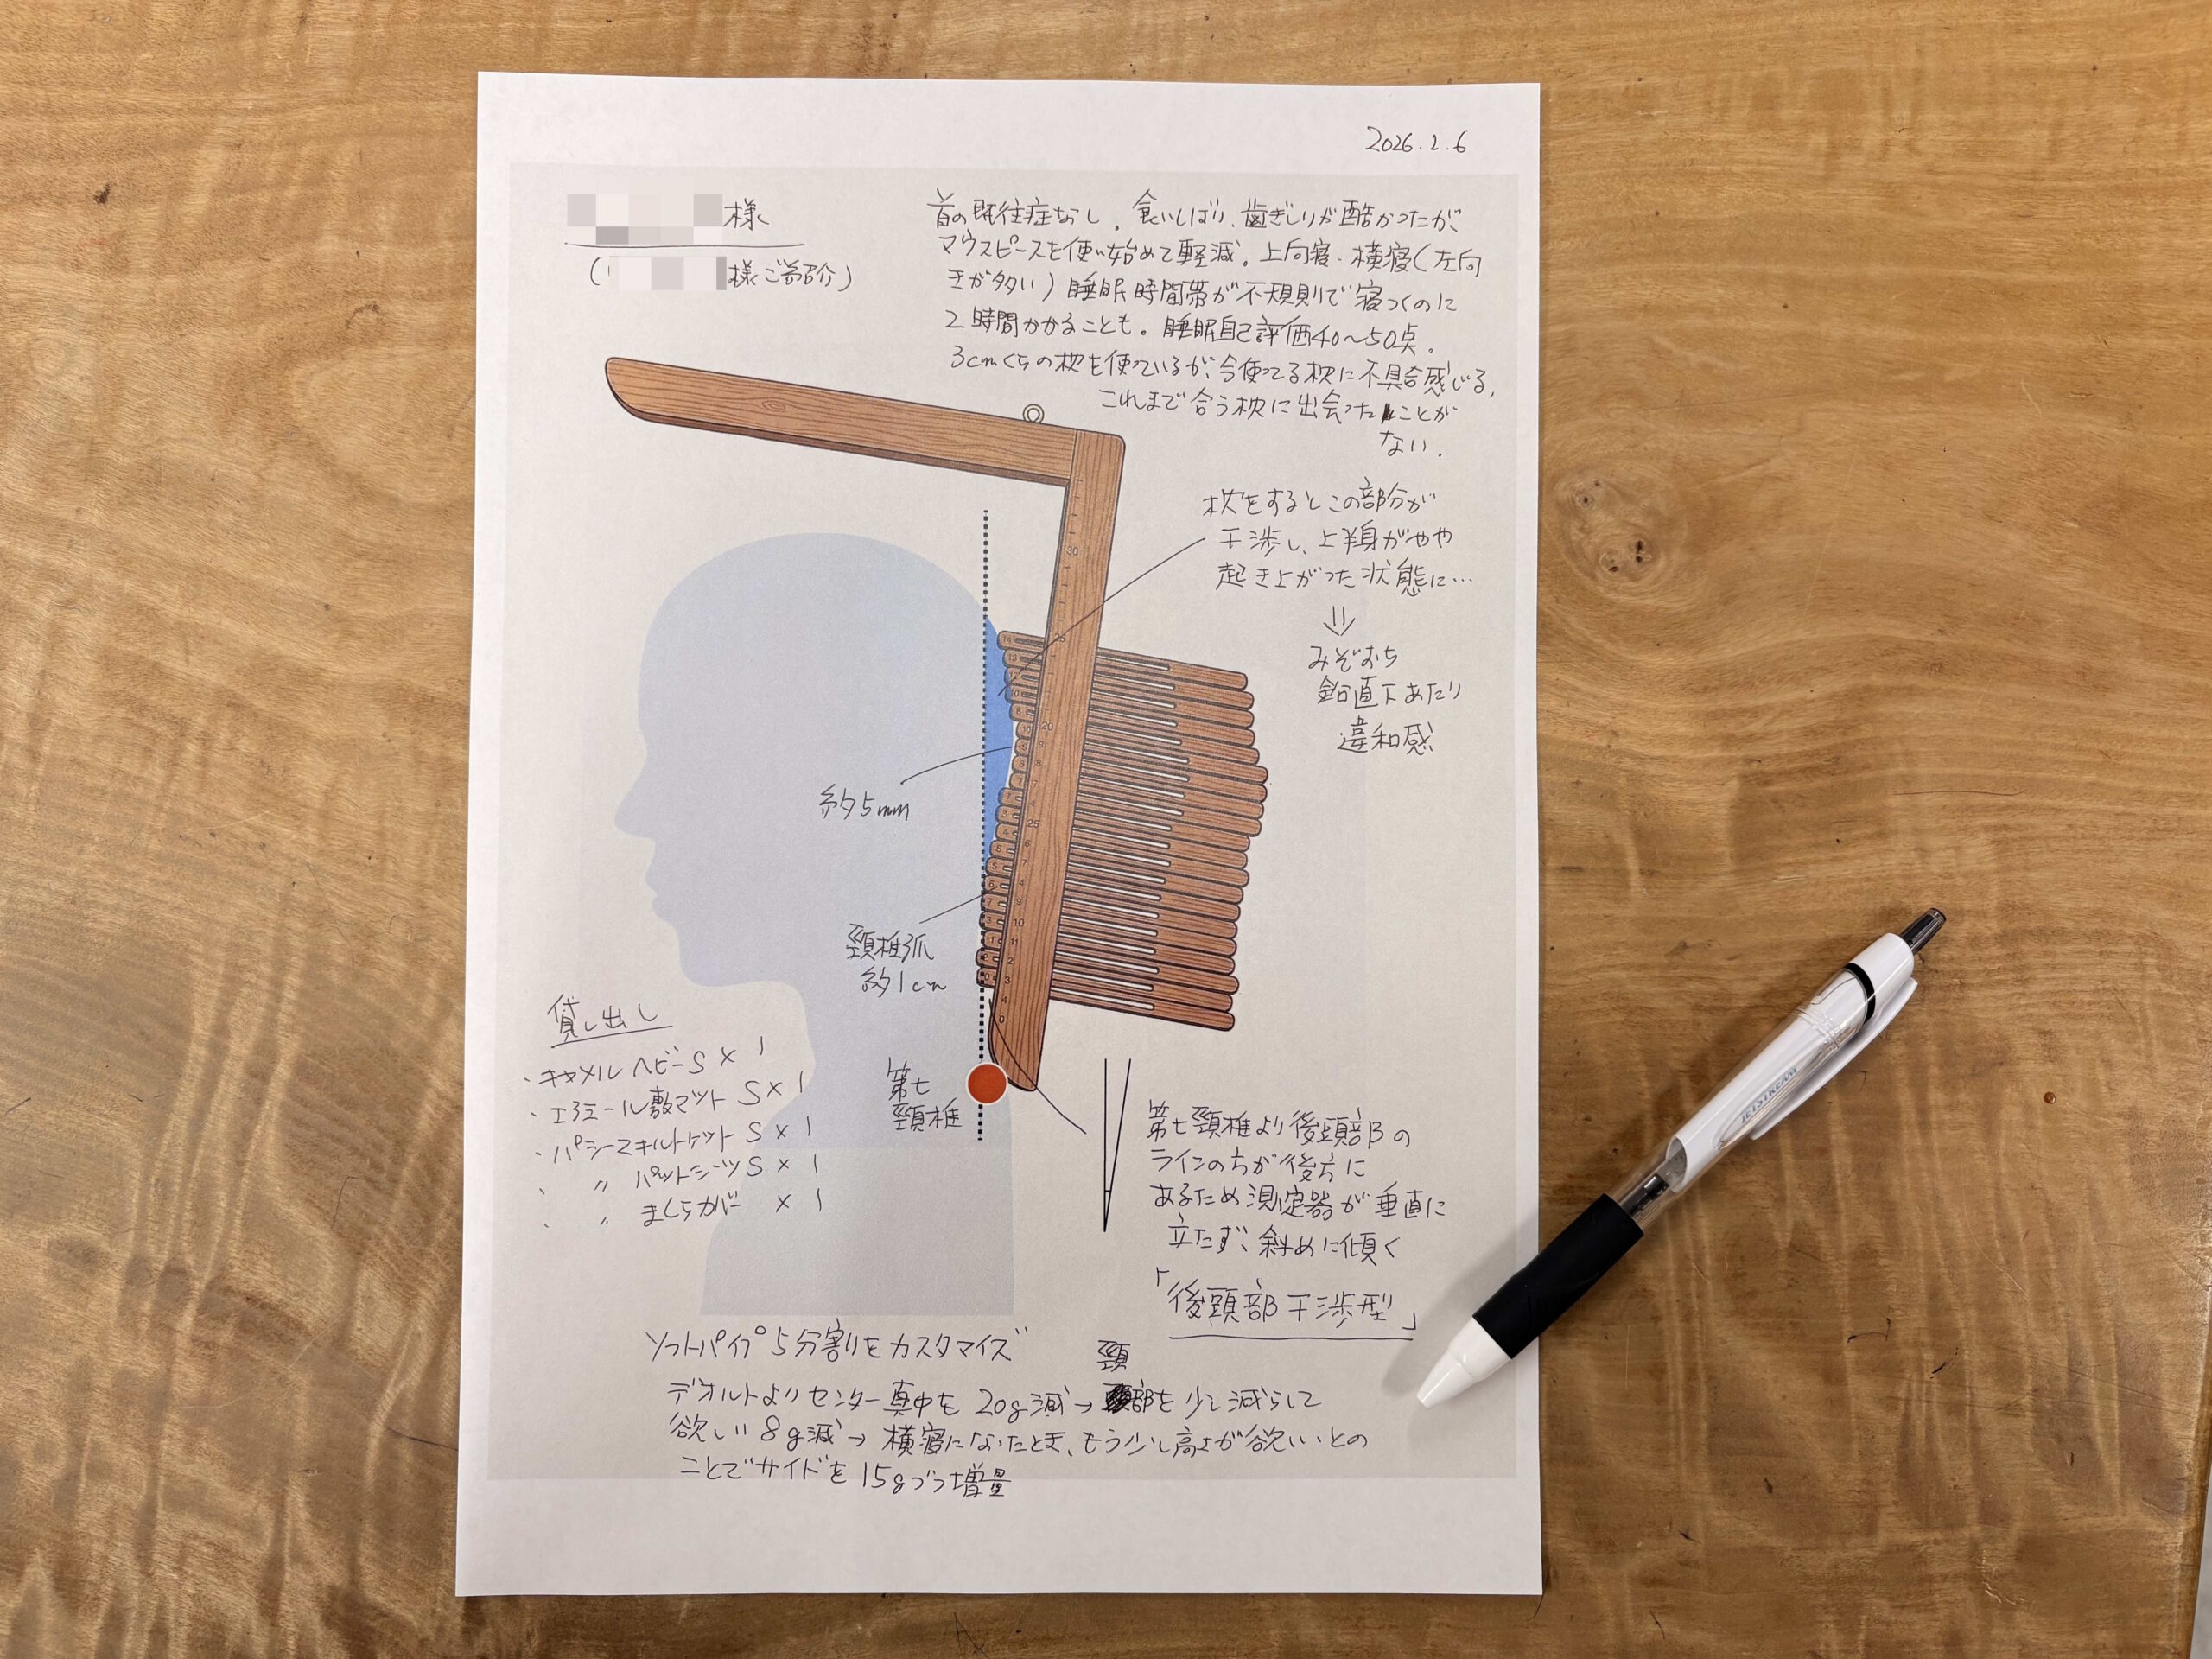 2026.2.6
様
(
様ご紹介)
首の既往症なし。食いしばり、歯ぎしりが酷かったが、
マウスピースを使い始めて軽減。上向寝・横寝(左向
きが多い)睡眠時間帯が不規則で寝つくのに
2時間かかることも。睡眠自己評価40〜50点。
3cmくらの枕を使っているが、今使ってる枕に不具合感じる。
これまで合う枕に出会ったことが
ない.
枕をするとこの部分が
干渉し、上半身がやや
起き上がった状態に…
⇓
みぞおち
鉛直下あたり
違和感
約5mm
頸椎弧
約1cm
第七
頸椎
貸し出し
・キャメルヘビーS×1
・エラミール敷マットS×1
・パシーマキルトケットS×1
・〃パットシーツS×1
・〃まくらカバー×1
第七頸椎より後頭部の
ラインのちが後方に
あるため測定器が垂直に
立たず、斜めに傾く
「後頭部干渉型」
ソフトパイプ5分割をカスタマイズ
頸
デオルトよりセンター真中を20g減→部を少し減らして
欲しい8g減→横寝になったとき、もう少し高さが欲しいとの
ことでサイドを15gづつ増量
JETSTREAM
30
25
20
25
10